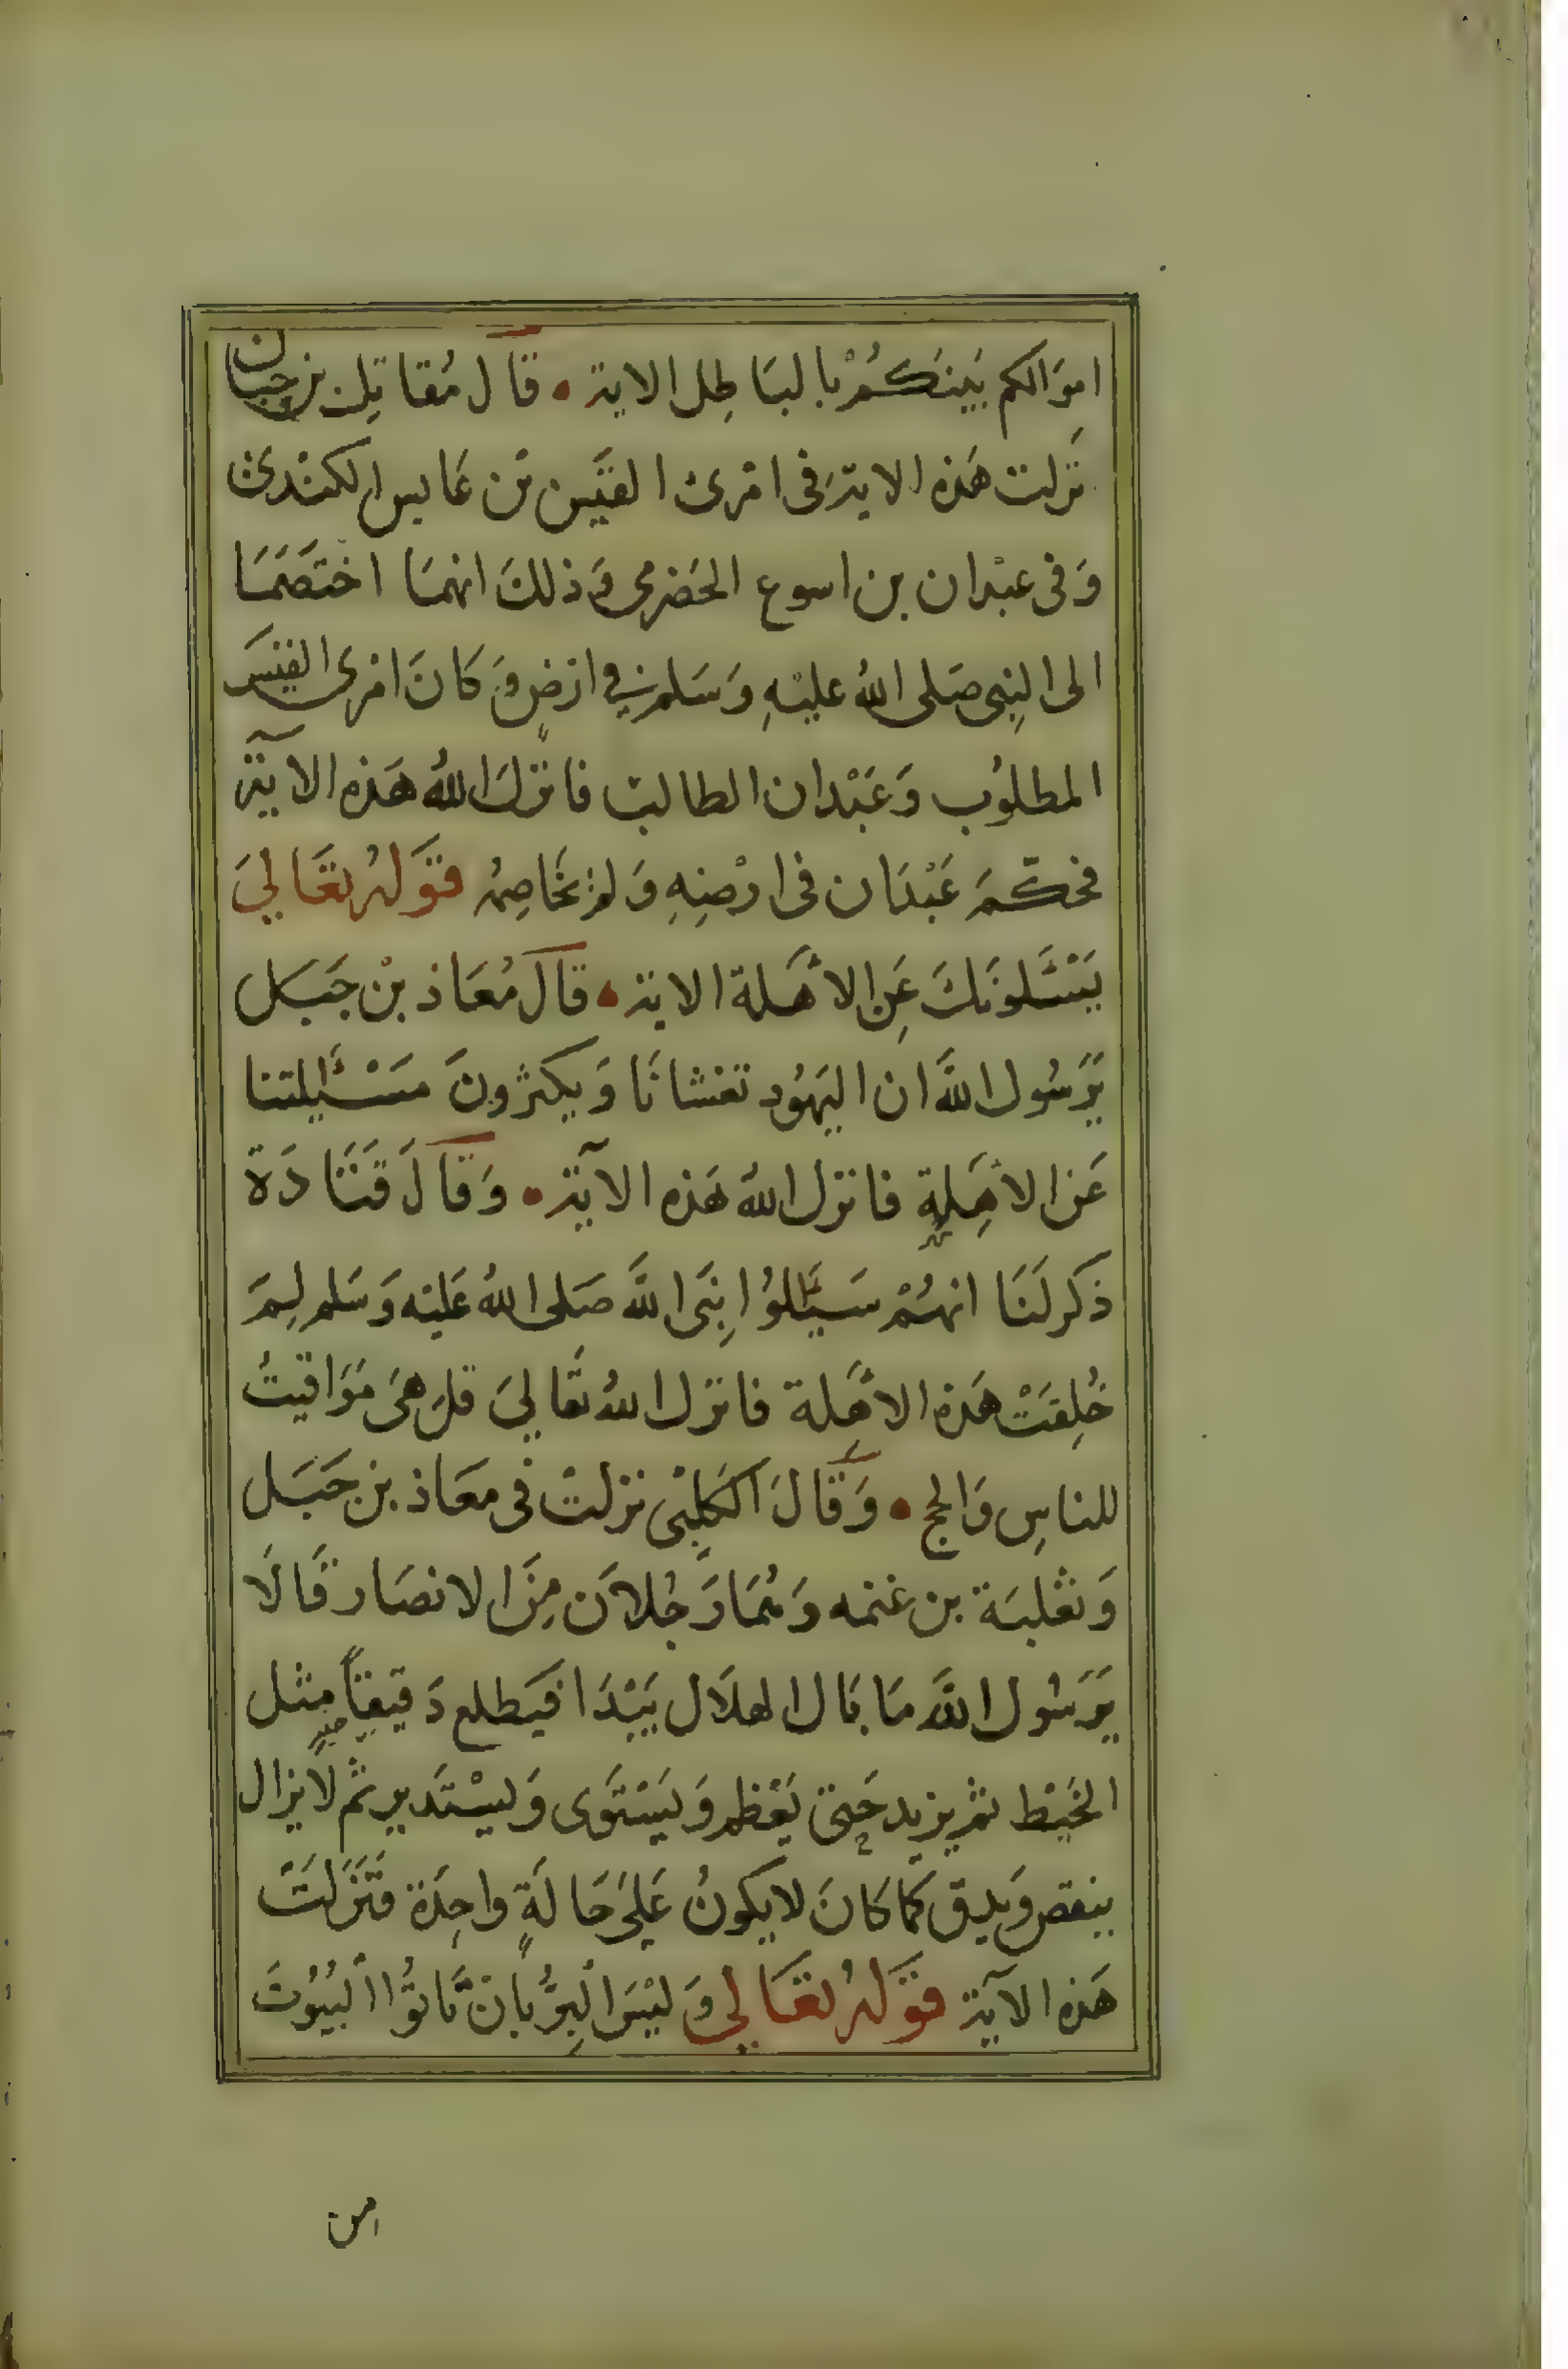 اموَالكم بَينَكُمْ بالبَاطِل الاية • قَالَ مُقاتِل بن حيان
نزلت هَذه الاية فى امْرئ القَيس بن عَابس الكنْدىّ
وَفى عبْدان بن اسوع الحَضرمى وَذلكَ انهمَا اختَصَمَا
الى النبِى صَلى اللهُ عليْهِ وَسَلم في ارْضٍ وَكانَ امْرئ القيسَ
المطلوُب وَعَبْدان الطالب فانزلَ اللهُ هَذه الآية
فحكّمَ عَبْدَان فى ارْضِهِ وَلم يخَاصِمْه قَوَلهُ تعَالىَ
يَسْئَلونَكَ عَنِ الأهَلة الاية • قَالَ مُعَاذ بْن جَبَل
يَرَسُول اللَّه ان اليَهُود تغشانَا وَيكثرونَ مسْئلتنا
عَن الأهِلةِ فانزل اللهُ هَذه الآية • وَقَالَ قَتَادَة
ذكر لَنَا انهُمْ سَئَلوُا نبَى اللَّه صَلى اللهُ عَليْه وَسَلم لِمَ
خُلِقتْ هَذه الأهِلة فانزل اللهُ تعَالىَ قل هىَ مَوَاقيتُ
للناسِ وَالحج • وَقَالَ الكَلِبْى نزلتْ فى معَاذ بن جَبَل
وَثعْلبَة بن غنمه وَهُمَا رَجُلاَن مِنَ الانصَار قَالَا
يَرَسُول اللَّه مَا بَال الهلاَل يَبْدَا فَيَطلع دَقيقًا مِثل
الخَيْط ثم يزيد حَتىّ يَعْظم وَيَسْتَوى وَيسْتَدير ثم لَا يزال
ينقص وَيدق كمَا كَانَ لا يكونُ عَلىَ حَالَةٍ واحِدَة فَنَزَلَتَ
هَذه الآية قَوَلهُ تعَالىَ وَليْسَ البِرُّ بأنْ تَأتوُا البُيُوتَ
من